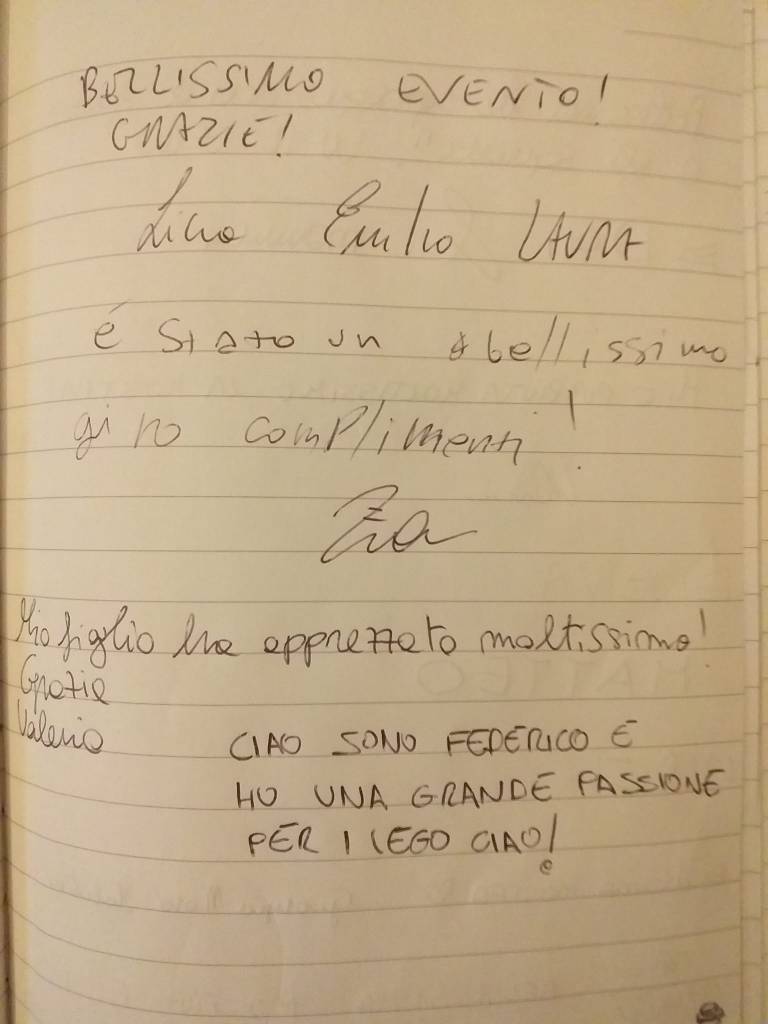 BELLISSIMO EVENTO!
GRAZIE!
Emilio LAURA
é stato un bellissimo
giro complimenti!
Mio figlio ha apprezzato moltissimo!
Grazie
Valerio
CIAO SONO FEDERICO E
HO UNA GRANDE PASSIONE
PER I LEGO CIAO!